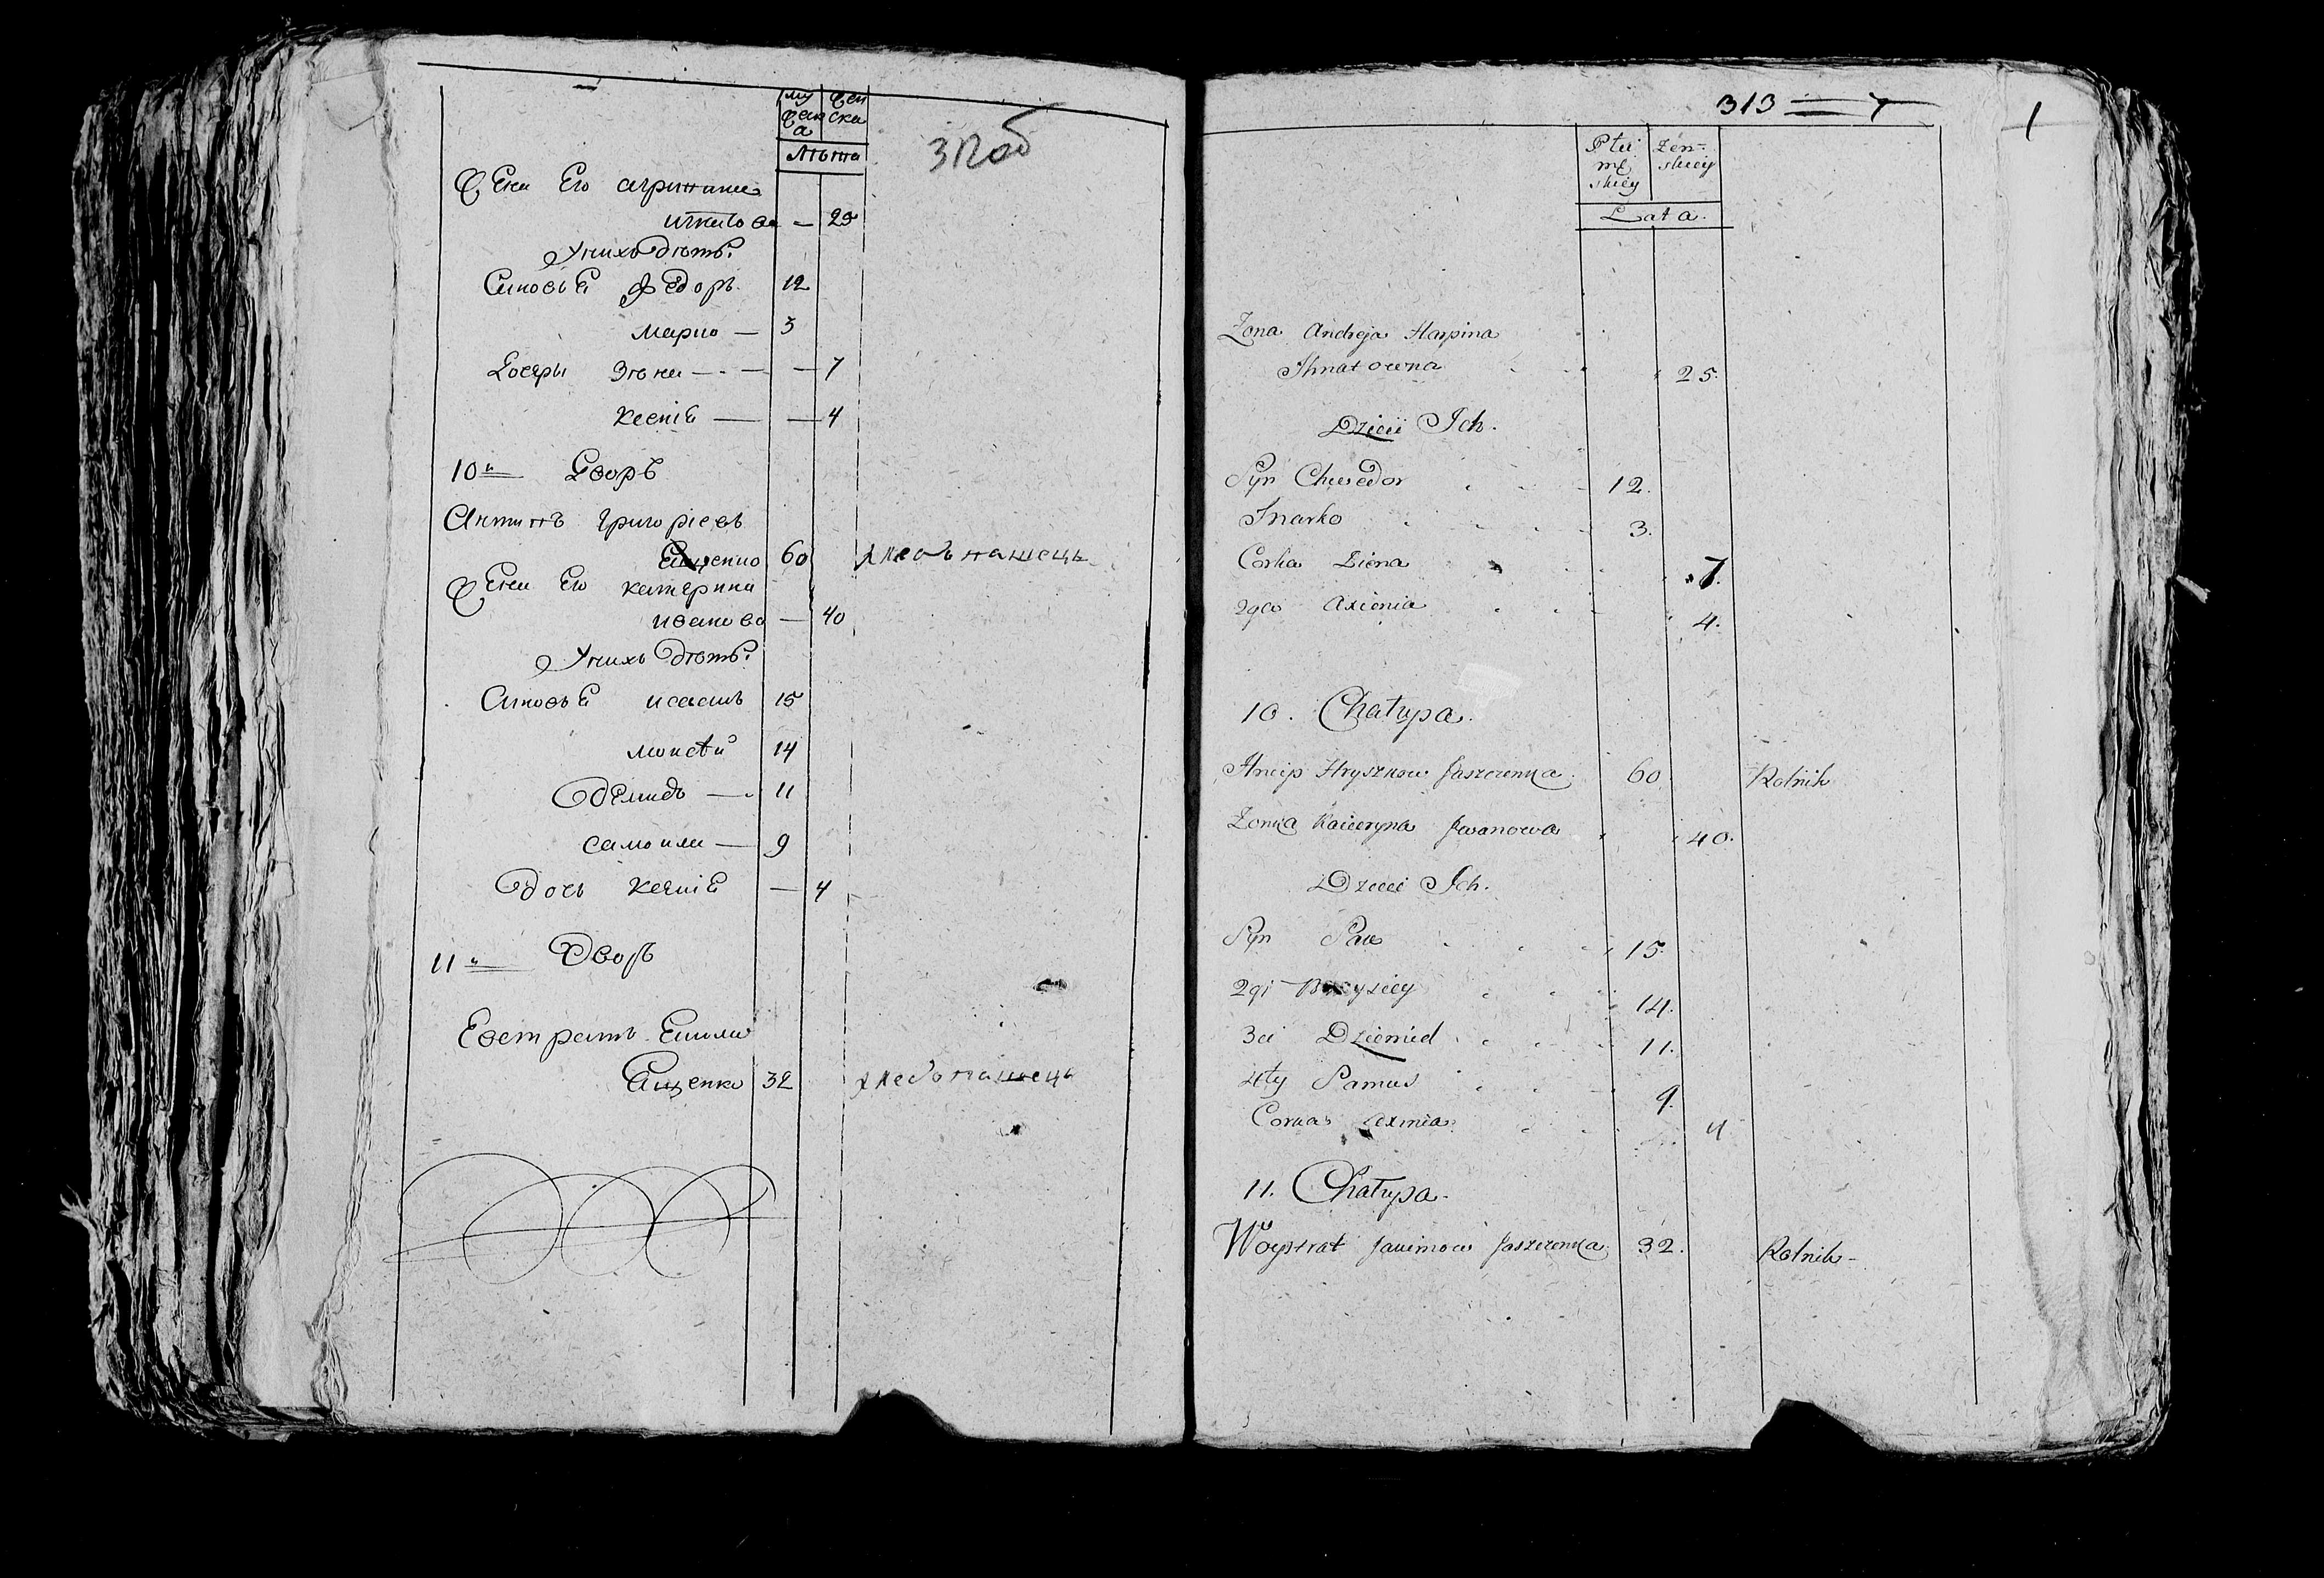 му
жеи
жен
ска
а
лѣта
312об
Жена Его агрипина
игнатова — 25
У нихъ дѣти:
Синовья Федоръ 12
марко — 3
Дочеры Зѣня — 7
Ксенія — 4
10й Дворъ
Антипъ григоріевъ
Ященко 60 хлебопашецъ
Жена Его катерина
иванова — 40
У нихъ дѣти:
Синовья исакъ 15
моисей 14
Демидъ — 11
самоила — 9
Дочь Ксенія — 4
11й Дворъ
Евстратъ Екимов
Ященко 32 хлебопашецъ
313 7
1
Płci
mę
skiey
Żeń-
skiey
Lata.
Żona Andreja Harpina
Ihnatowna 25.
Dzieci Ich.
Syn Chwedor 12.
Marko 3.
Corka Ziena 7.
2ga Axienia 4.
10. Chałupa.
Ancip Hryszkow Jaszczenka 60. Rolnik
Żonka Kacieryna Jwanowa 40.
Dzieci Ich.
Syn 15.
2gi 14.
3ci Dziemid 11.
4ty Samus 9.
Corka Axinia 4
11. Chałupa.
Woystrat Jakimow Jaszczenka 32. Rolnik